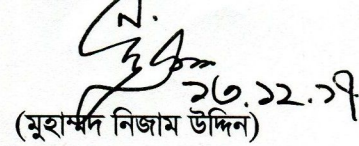 ১৩.১২.১৭
(মুহাম্মদ নিজাম উদ্দিন)